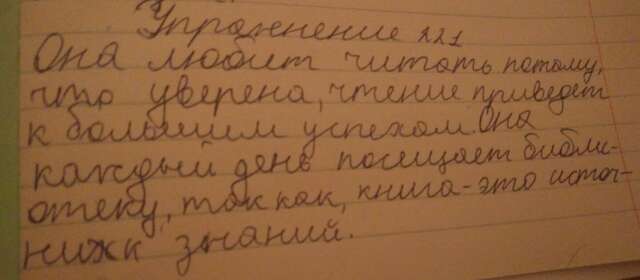 Упражнение 221
Она любит читать потому,
что уверена, чтение приведет
к большим успехам. Она
каждый день посещает библи-
отеку, так как, книга-это источ-
нижк знаний.